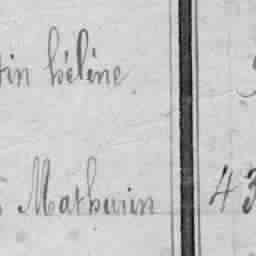 hélène
Mathurin 43